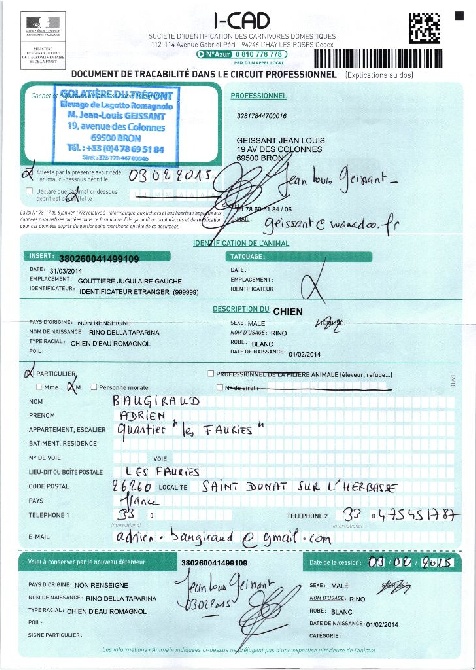 I-CAD
SOCIÉTÉ D'IDENTIFICATION DES CARNIVORES DOMESTIQUES
112-114 Avenue Gabriel Péri - 94246 L'HAY LES ROSES Cedex
N° Azur 0 810 778 778
DOCUMENT DE TRACABILITÉ DANS LE CIRCUIT PROFESSIONNEL (Explications au dos)
Elevage de Lagotto Romagnolo
M. Jean-Louis GEISSANT
19, avenue des Colonnes
69500 BRON
Tél. : +33 (0)4 78 69 51 84
PROFESSIONNEL
GEISSANT JEAN LOUIS
19 AV DES COLONNES
69500 BRON
03 02 2015
Jean Louis Geissant
geissant@wanadoo.fr
IDENTIFICATION DE L'ANIMAL
INSERT: 380260041499109
TATOUAGE:
DATE: 31/03/2014
EMPLACEMENT GOUTTIERE JUGULAIRE GAUCHE
EMPLACEMENT:
IDENTIFICATEUR: IDENTIFICATEUR ETRANGER (999999)
IDENTIFICATEUR
DESCRIPTION DU CHIEN
PAYS D'ORIGINE: NON RENSEIGNE
SEXE: MALE
NOM DE NAISSANCE: RINO DELLA TAPARINA
NOM D'USAGE: RINO
TYPE RACIAL: CHIEN D'EAU ROMAGNOL
ROBE: BLANC
POIL:
DATE DE NAISSANCE: 01/02/2014
PARTICULIER
PROFESSIONNEL DE LA FILIERE ANIMALE (éleveur, refuge...)
Mme M Personne morale
N° de siret
NOM BAUGIRAUD
PRENOM ADRIEN
APPARTEMENT, ESCALIER Quartier "les FAURIES"
BATIMENT, RESIDENCE
N° DE VOIE VOIE
LIEU-DIT OU BOÎTE POSTALE LES FAURIES
CODE POSTAL 26260 LOCALITE SAINT DONAT SUR L'HERBASSE
PAYS France
TELEPHONE 1 33 TELEPHONE 2 33 0475451787
E-MAIL adrien.baugiraud@gmail.com
Volet à conserver par le nouveau détenteur
380260041499109
Date de la cession: 03/02/2015
PAYS D'ORIGINE: NON RENSEIGNE
SEXE: MALE
NOM DE NAISSANCE: RINO DELLA TAPARINA
NOM D'USAGE: RINO
TYPE RACIAL: CHIEN D'EAU ROMAGNOL
ROBE: BLANC
POIL:
DATE DE NAISSANCE: 01/02/2014
SIGNE PARTICULIER:
CATEGORIE:
Jean Louis Geissant